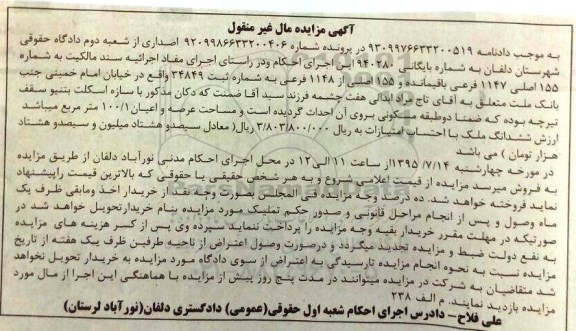 آگهی مزایده مال غیر منقول
به موجب دادنامه ۹۳۰۹۹۷۶۶۳۳۲۰۰۵۱۹ در پرونده شماره ۹۲۰۹۹۸۶۶۳۳۲۰۰۴۰۶ اصداری از شعبه دوم دادگاه حقوقی
شهرستان دلفان به شماره بایگانی ۹۴۰۲۸۰ این اجرای احکام ودر راستای اجرای مفاد اجرائیه سند مالکیت به شماره
۱۵۵ اصلی ۱۱۴۷ فرعی باقیمانده و ۱۵۵ اصلی از ۱۱۴۸ فرعی به شماره ثبت ۳۴۸۴۹ واقع در خیابان امام خمینی جنب
بانک ملت متعلق به آقای تاج مراد ابدالی هفت چشمه فرزند سید آقا ضمنت که دکان مذکور با سازه اسکلت بتنیو سقف
تیرچه بوده که ضمنا دوطبقه مسکونی بروی آن احداث گردیده است و مساحت عرصه و اعیان ۱۰۰/۱ متر مربع میباشد
ارزش ششدانگ ملک با احتساب امتیازات به ریال ۳/۸۰۳/۸۰۰/۰۰۰ ریال( معادل سیصدو هشتاد میلیون و سیصدو هشتاد
هزار تومان ) می باشد
در مورخه چهارشنبه ۱۳۹۵/۷/۱۴ از ساعت ۱۱ الی۱۲ در محل اجرای احکام مدنی نورآباد دلفان از طریق مزایده
به فروش میرسد مزایده از قیمت اعلامی شروع و به هر شخص حقیقی یا حقوقی که بالاترین قیمت راپیشنهاد
نماید فروخته خواهد شد. ده درصد وجه مزایده فی المجلس بصورت وجه نقد از خریدار اخذ ومابقی ظرف یک
ماه وصول و پس از انجام مراحل قانونی و صدور حکم تملیک مورد مزایده بنام خریدارتحویل خواهد شد در
صورتیکه در مهلت مقرر خریدار بقیه وجه مزایده را پرداخت ننماید سپرده وی پس از کسر هزینه های مزایده
به نفع دولت ضبط و مزایده تجدید میگردد و درصورت وصول اعتراض از ناحیه طرفین ظرف یک هفته از تاریخ
مزایده نسبت به نحوه انجام مزایده تارسیدگی به اعتراض از سوی دادگاه مورد مزایده به خریدار تحویل نخواهد
شد متقاضیان به شرکت در مزایده میتوانند در مدت پنج روز پیش از مزایده با هماهنگی این اجرا از مال مورد
مزایده بازدید نمایند. م الف ۲۳۸
علی فلاح– دادرس اجرای احکام شعبه اول حقوقی(عمومی) دادگستری دلفان(نورآباد لرستان)